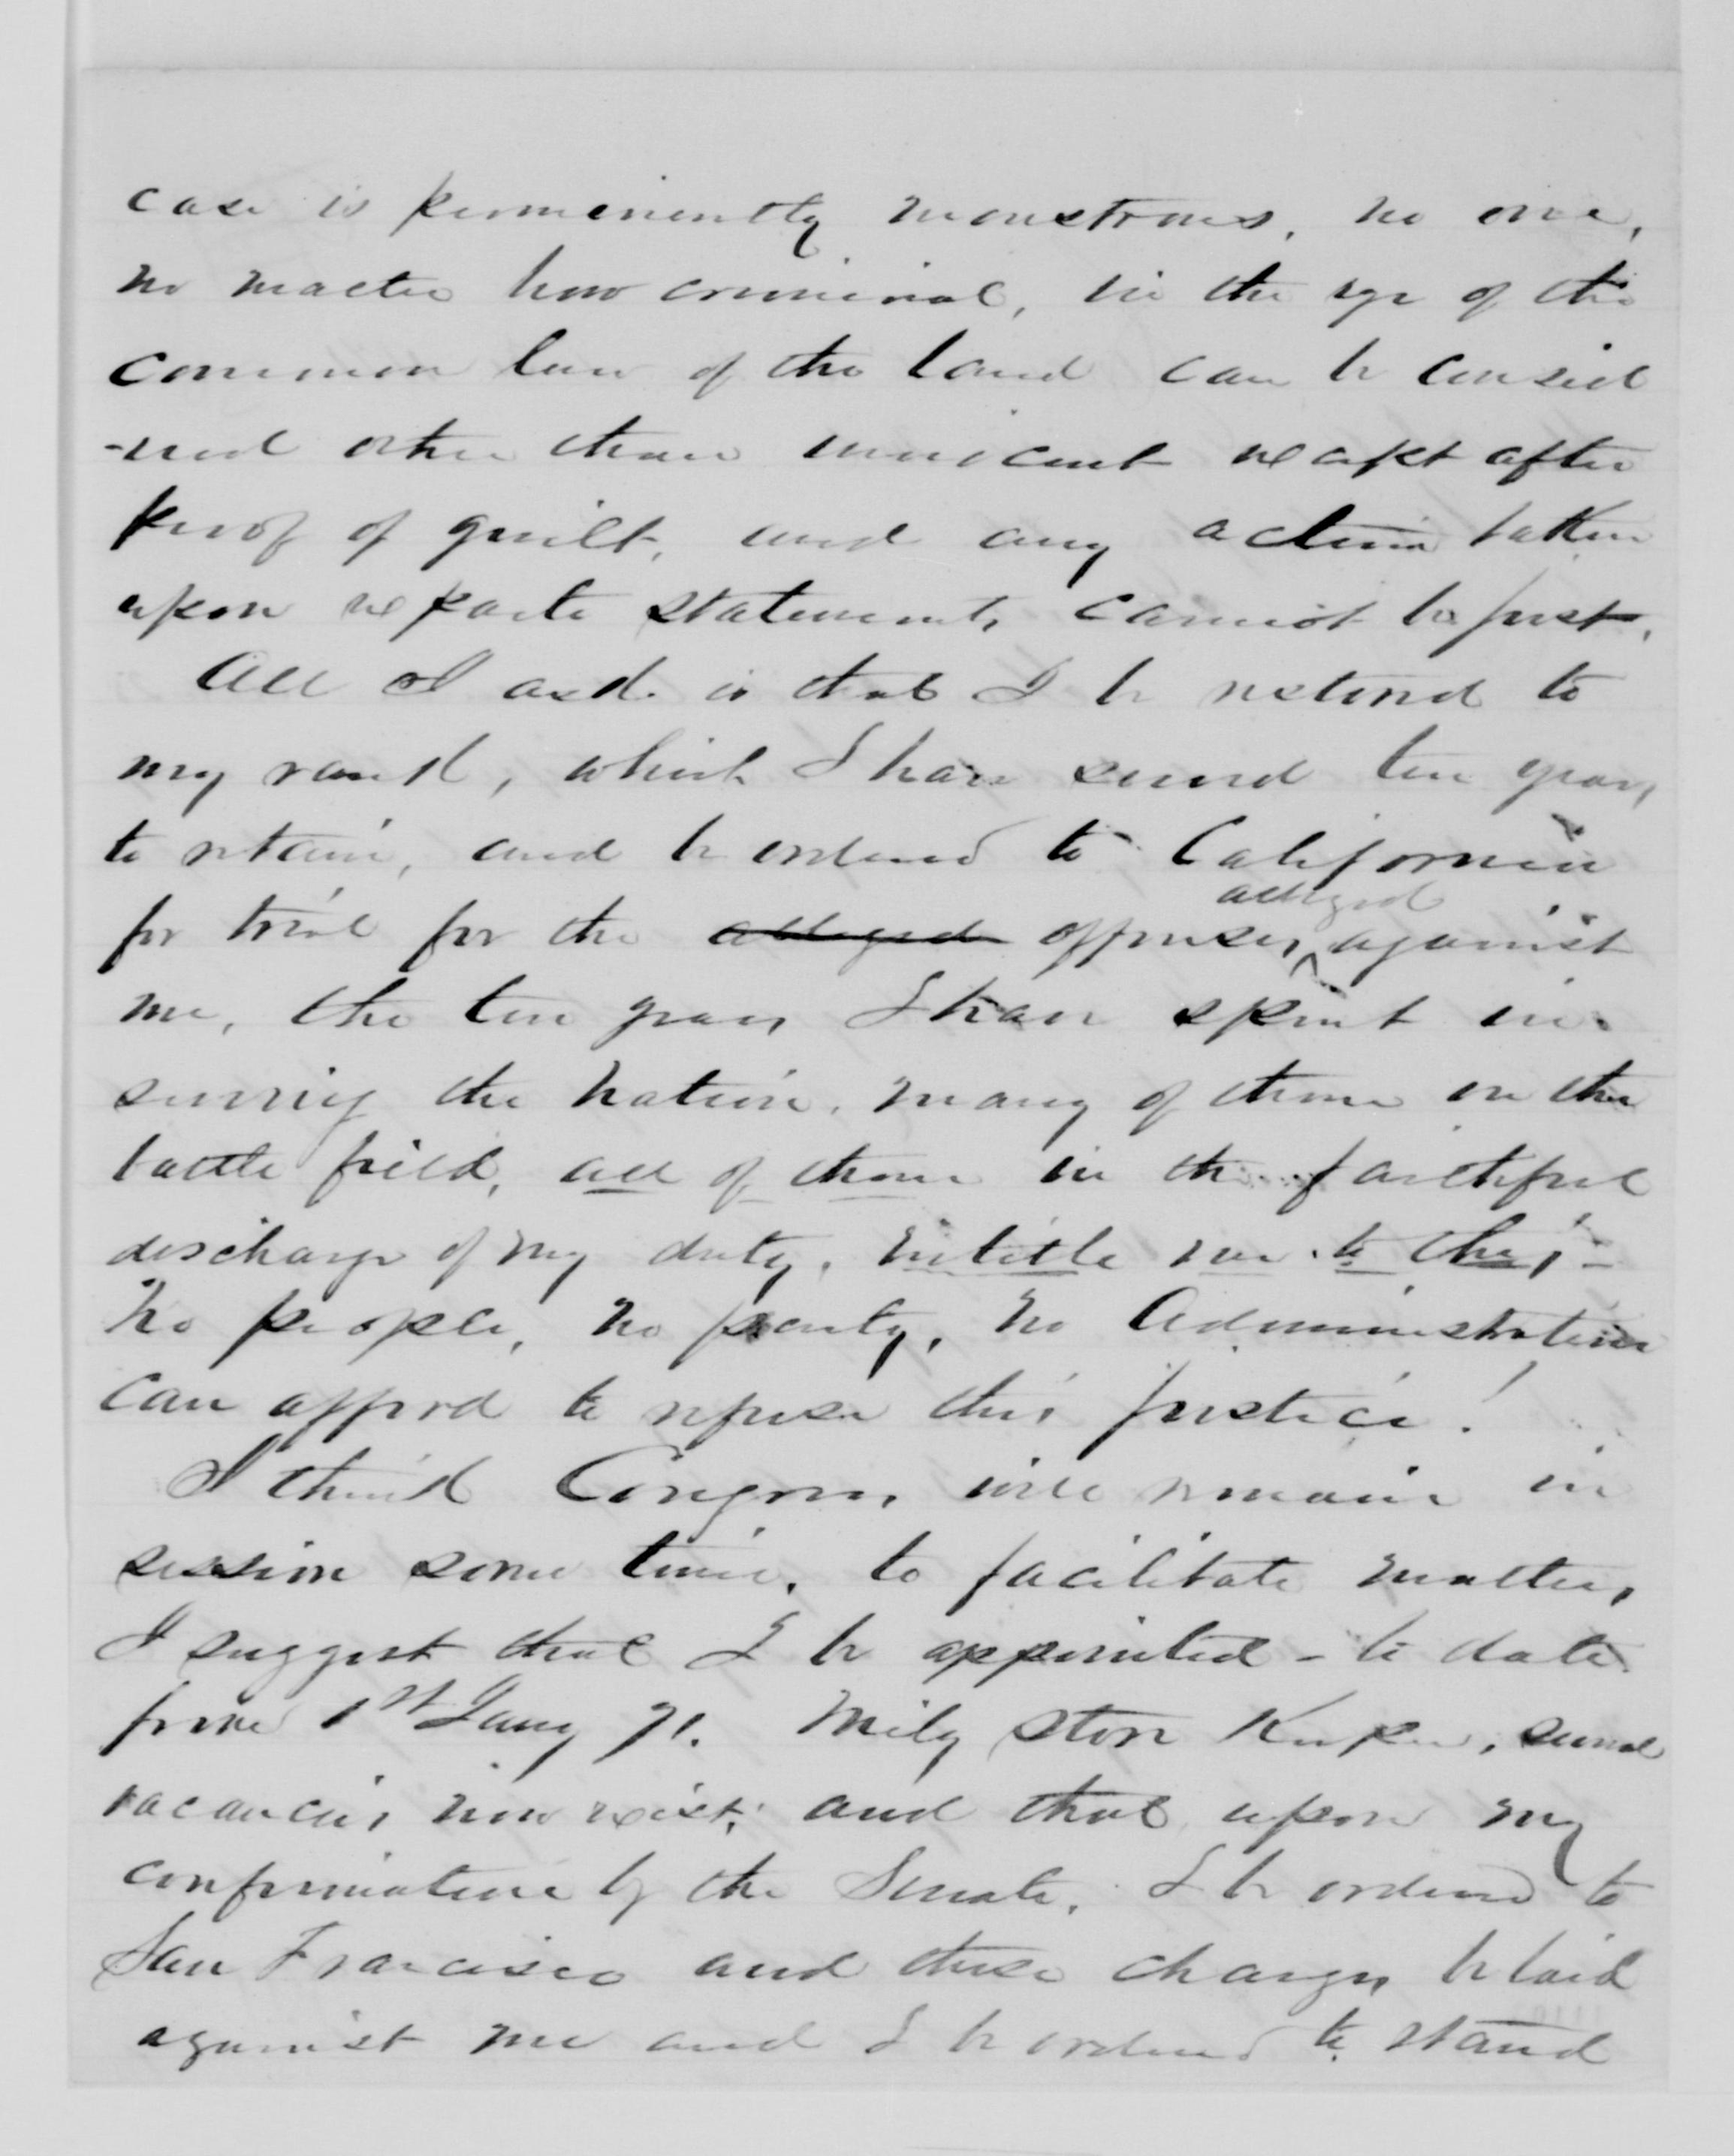 case is preeminently monstrous, no one,
no matter how criminal, in the eye of the
common law of the land can be consid
-ered other than innocent except after
proof of guilt, and any action taken
upon exparte statements cannot be just.
All I ask is that I be restored to
my rank, which I have served ten years
to retain, and be ordered to California
for trial for the alledged offenses alledged against
me, the ten years I have spent in
serving the nation, many of them on the
battle field, all of them in the faithful
discharge of my duty, entitle me to this,-
No people, no party, no Administration
can afford to refuse this justice!
I think Congress will remain in
session some time, to facilitate matters,
I suggest that I be appointed - to date
from 1st Jany 71. Mily Store Keeper, several
vacancies now exist; and that upon my
confirmation by the Senate, I be ordered to
San Francisco and these charges be laid
against me and I be ordered to stand